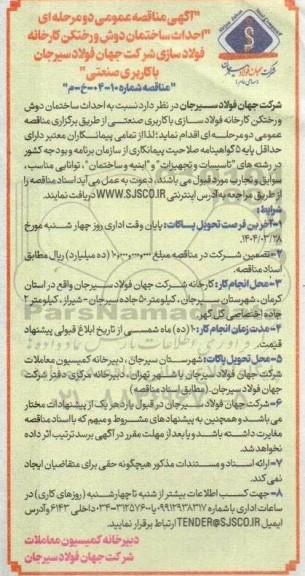 "آگهی مناقصه عمومی دو مرحله ای
"احداث ساختمان دوش و رختکن کارخانه
فولاد سازی شرکت جهان فولاد سیرجان
با کاربری صنعتی"
"مناقصه شماره ۱۰-۰۴-خ-م"
شرکت جهان فولاد سیرجان در نظر دارد نسبت به احداث ساختمان دوش
و رختکن کارخانه فولاد سازی با کاربری صنعتی از طریق برگزاری مناقصه
عمومی دو مرحله ای اقدام نماید؛ لذا از تمامی پیمانکاران معتبر دارای
حداقل پایه ۵ گواهینامه صلاحیت پیمانکاری از سازمان برنامه و بودجه کشور
در رشته های "تاسیسات و تجهیزات" و "ابنیه و ساختمان"، توانایی مناسب ،
سوابق و تجارب مورد قبول می باشند، دعوت به عمل می آید اسناد مناقصه را
از طریق مراجعه به آدرس اینترنتی WWW.SJSCO.IR دریافت نمایند.
شرایط:
۱-آخرین فرصت تحویل پاکات: پایان وقت اداری روز چهار شنبه مورخ
۱۴۰۴/۰۳/۲۸.
۲-تضمین شرکت در مناقصه مبلغ ۱۰,۰۰۰,۰۰۰,۰۰۰ (ده میلیارد) ریال مطابق
اسناد مناقصه.
۳-محل انجام کار: کارخانه شرکت جهان فولاد سیرجان واقع در استان
کرمان، شهرستان سیرجان، کیلومتر ۵۰ جاده سیرجان - شیراز، کیلومتر ۲
جاده اختصاصی گل گهر.
۴-مدت زمان انجام کار: ۱۰ (ده) ماه شمسی از تاریخ ابلاغ قبولی پیشنهاد
قیمت.
۵-محل تحویل پاکات: شهرستان سیرجان، دبیرخانه کمیسیون معاملات
شرکت جهان فولاد سیرجان یا شهر تهران، دبیرخانه مرکزی دفتر شرکت
جهان فولاد سیرجان. (مطابق اسناد مناقصه)
۶-شرکت جهان فولاد سیرجان در قبول یا رد هر یک از پیشنهادات مختار
می باشد و همچنین به پیشنهادهای مشروط و مبهم که با اسناد مناقصه
مغایرت داشته باشد و یا بعد از مهلت مقرر در آگهی برسد ترتیب اثر داده
نخواهد شد.
۷-ارائه اسناد و مستندات مذکور هیچگونه حقی برای متقاضیان ایجاد
نمی کند.
۸-جهت کسب اطلاعات بیشتر از شنبه تا چهارشنبه (روزهای کاری) در
ساعات اداری با شماره ۰۹۹۱۲۹۳۸۳۱۷ یا ۳۱۲۵۷۶۰۰-۰۳۴ داخلی ۶۱۴۳ و آدرس
ایمیل TENDER@SJSCO.IR ارتباط برقرار نمایید.
دبیرخانه کمیسیون معاملات
شرکت جهان فولاد سیرجان